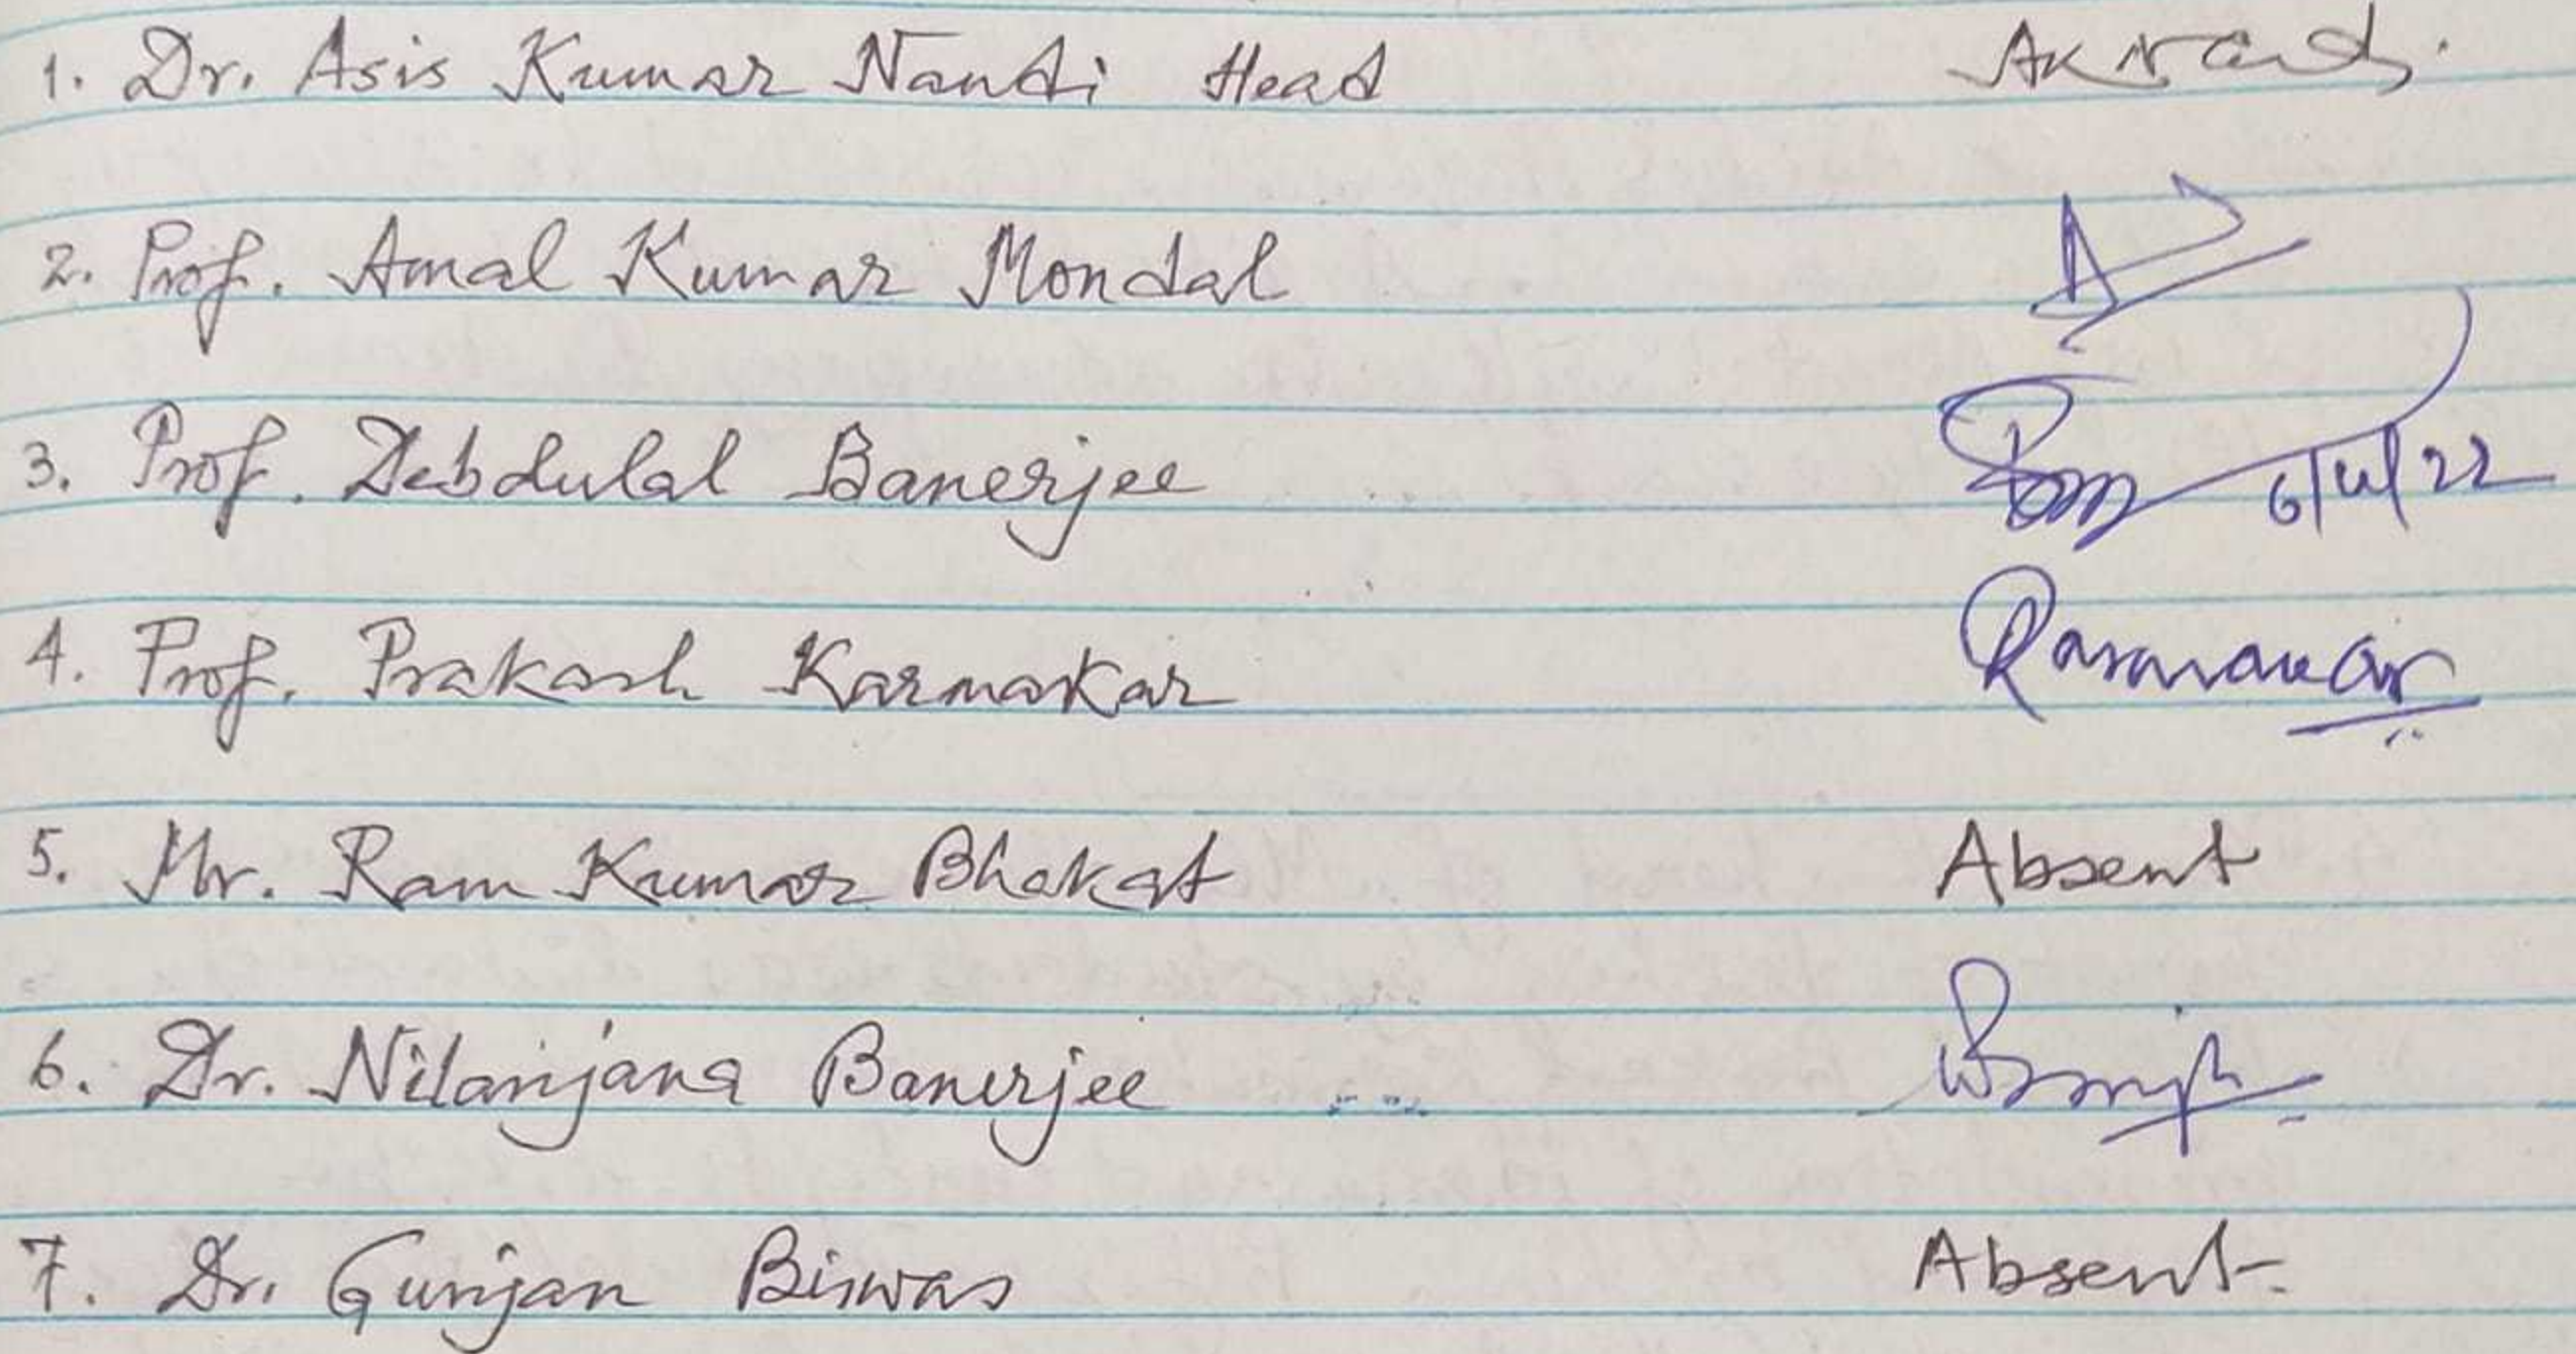 1. Dr. Asis Kumar Nandi Head AK Nandi.
2. Prof. Amal Kumar Mondal
3. Prof. Debdulal Banerjee
4. Prof. Prakash Karmakar
5. Mr. Ram Kumar Bhakat Absent
6. Dr. Nilanjana Banerjee
7. Dr. Gunjan Biswas Absent